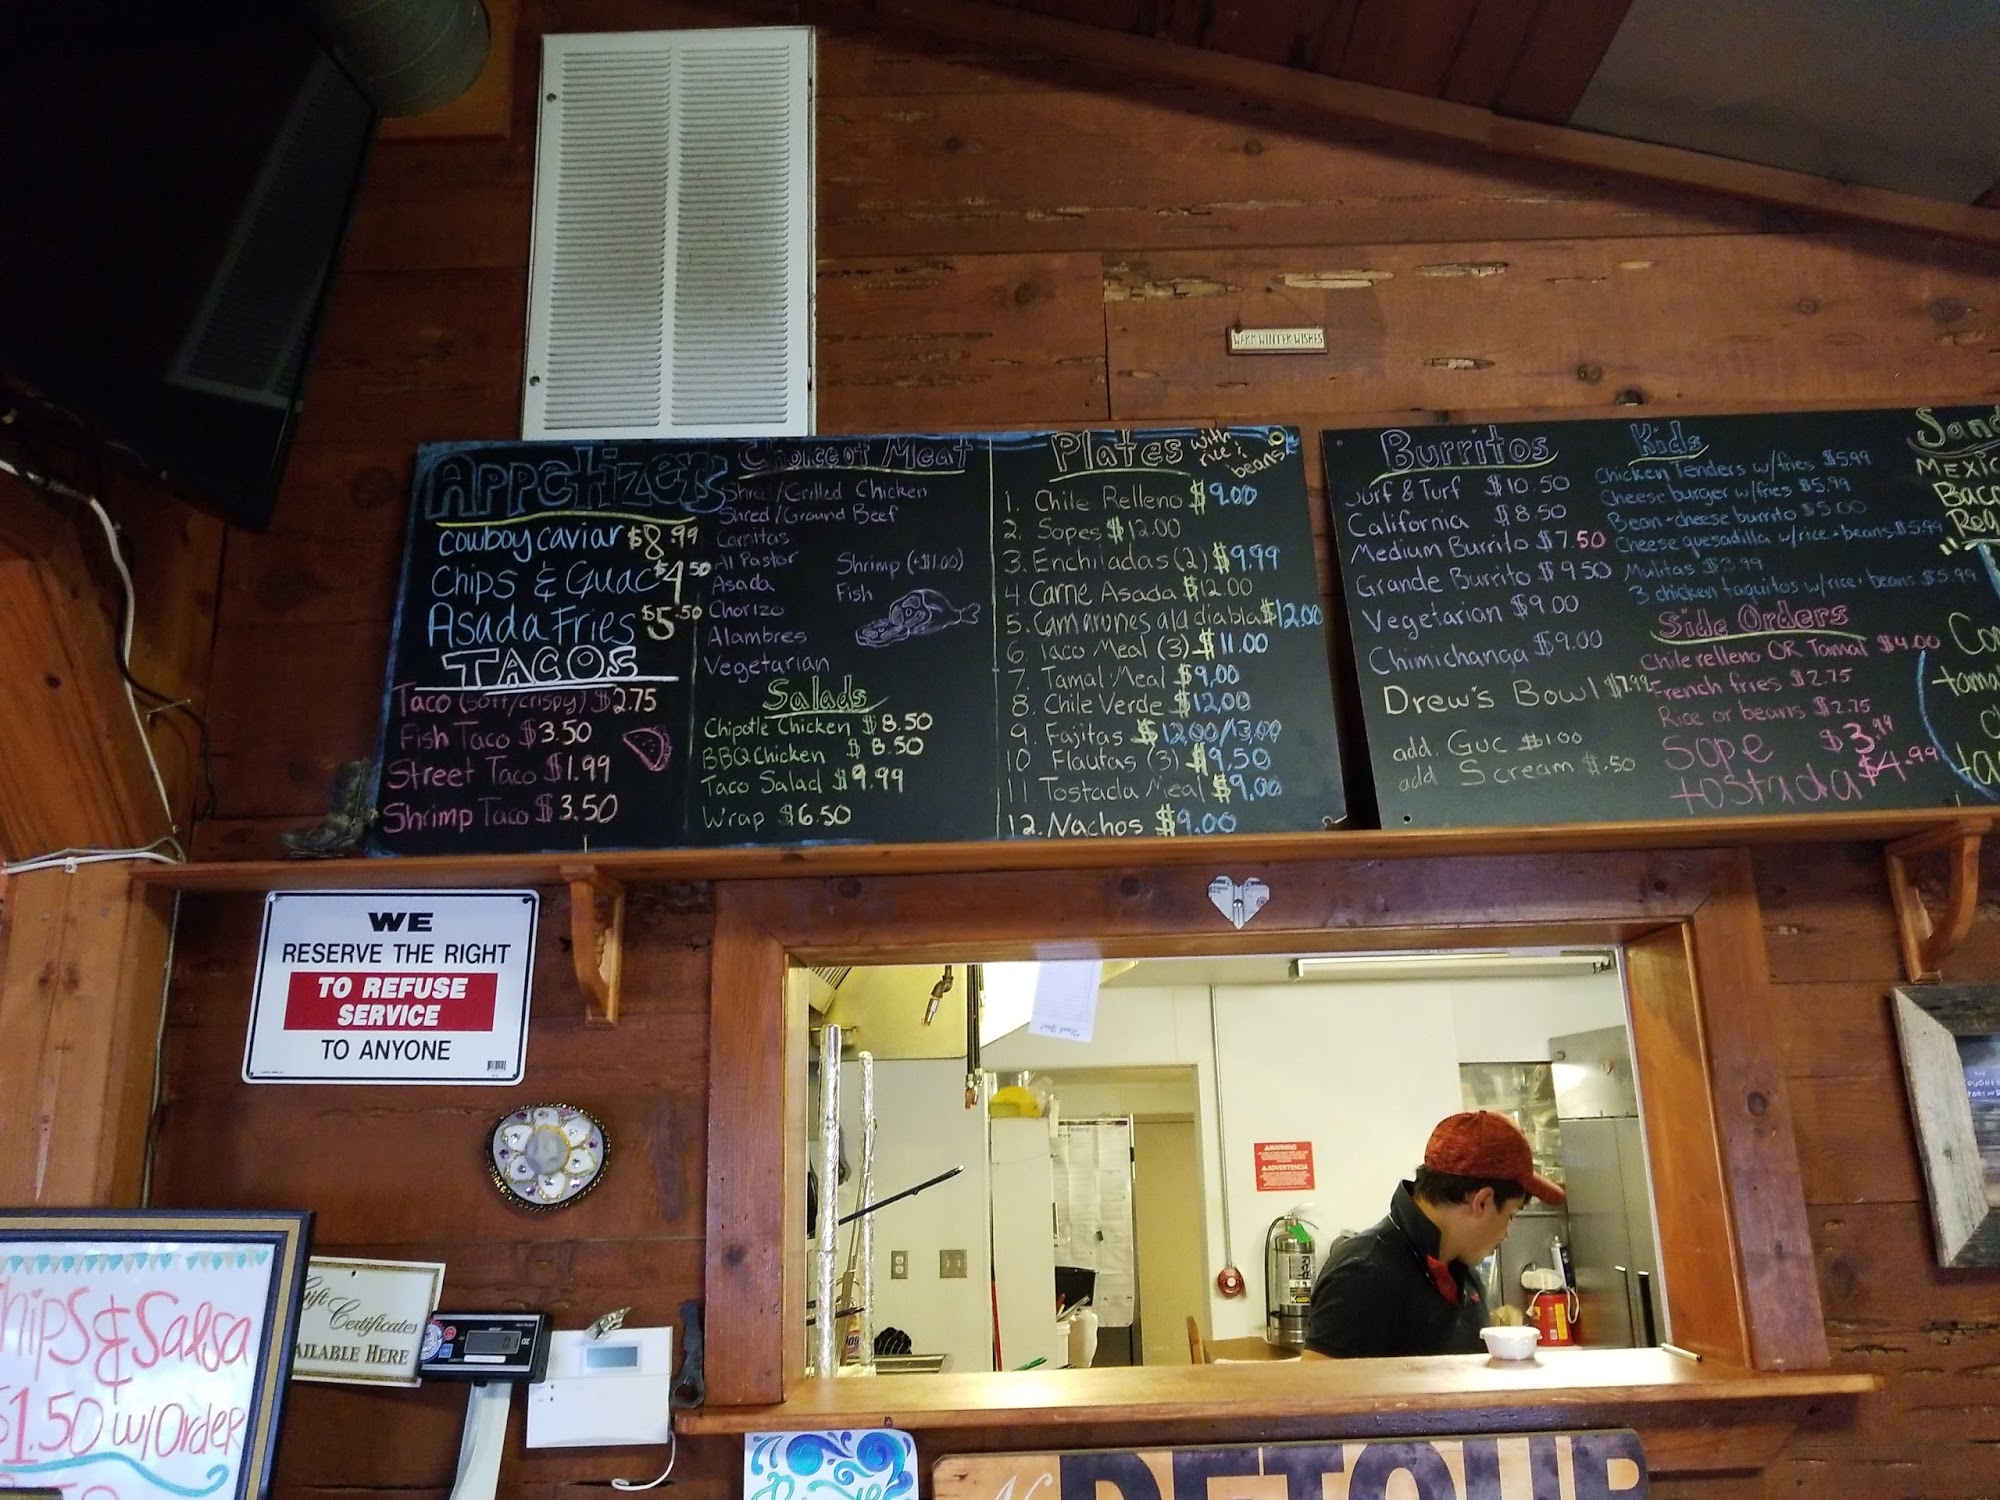 WARM WINTER WISHES
Appetizers
cowboy caviar $8.99
Chips & Guac $4.50
Asada Fries $5.50
TACOS
Taco (soft/crispy) $2.75
Fish Taco $3.50
Street Taco $1.99
Shrimp Taco $3.50
Choice of Meat
Shred/Grilled Chicken
Shred/Ground Beef
Carnitas
Al Pastor
Asada
Chorizo
Alambres
Vegetarian
Shrimp (+$1.00)
Fish
Salads
Chipotle Chicken $8.50
BBQ Chicken $8.50
Taco Salad $9.99
Wrap $6.50
Plates with rice & beans
1. Chile Relleno $9.00
2. Sopes $12.00
3. Enchiladas (2) $9.99
4. Carne Asada $12.00
5. Camarones ala diabla $12.00
6 Taco Meal (3) $11.00
7 Tamal Meal $9.00
8. Chile Verde $12.00
9. Fajitas $12.00/13.00
10 Flautas (3) $9.50
11 Tostada Meal $9.00
12. Nachos $9.00
Burritos
Surf & Turf $10.50
California $8.50
Medium Burrito $7.50
Grande Burrito $9.50
Vegetarian $9.00
Chimichanga $9.00
Drew's Bowl $7.99
add. Guc $1.00
add Scream $.50
Kids
Chicken Tenders w/fries $5.99
Cheese burger w/fries $5.99
Bean + cheese burrito $5.00
Cheese quesadilla w/rice + beans $5.99
Mulitas $3.99
3 chicken taquitos w/rice + beans $5.99
Side Orders
Chile relleno OR Tamal $4.00
French fries $2.75
Rice or beans $2.75
Sope $3.99
tostada $4.99
WE
RESERVE THE RIGHT
TO REFUSE
SERVICE
TO ANYONE
WARNING
ADVERTENCIA
Chips & Salsa
$1.50 w/Order
Gift
Certificates
AVAILABLE HERE
DETOUR